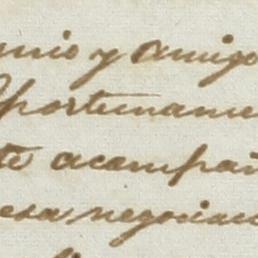 mio y amigo
Oportuname
te acompañ
esa negociac